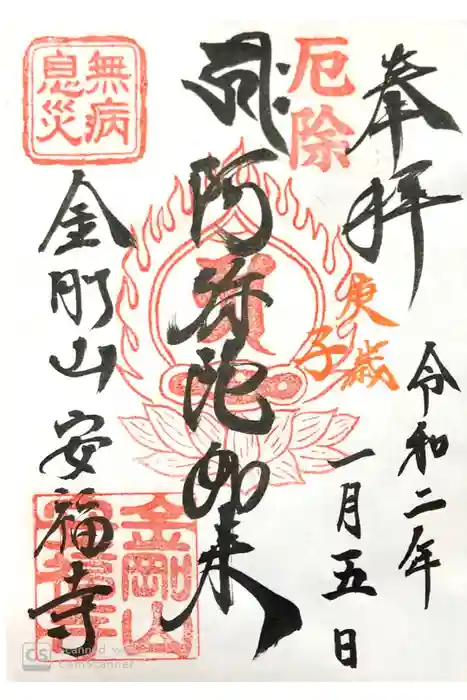 奉拝
令和二年
一月五日
厄除
庚子歳
阿弥陀如来
無病
息災
金剛山 安福寺
金剛山
安福寺
Scanned with
CamScanner